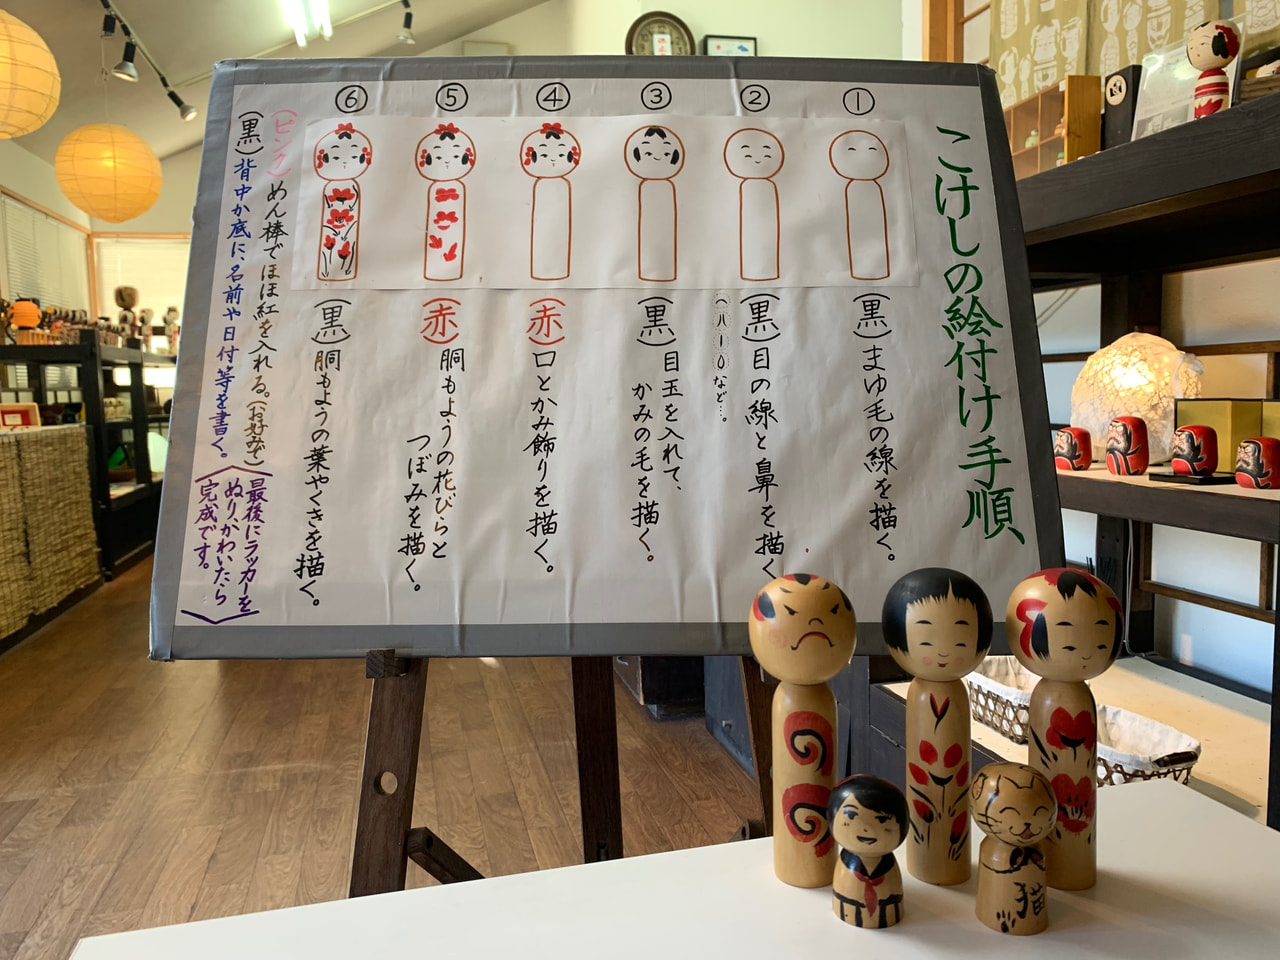 こけしの絵付け手順
①
(黒)まゆ毛の線を描く。
②
(黒)目の線と鼻を描く
(八ハ1〇など…。
③
(黒)目玉を入れて、
かみの毛を描く。
④
(赤)口とかみ飾りを描く。
⑤
(赤)胴もようの花びらと
つぼみを描く。
⑥
(黒)胴もようの葉やくきを描く。
(ピンク)めん棒でほほ紅を入れる。(お好みで)
(黒)背中か底に、名前や日付等を書く。
最後にラッカーを
ぬり、かわいたら
完成です。
猫